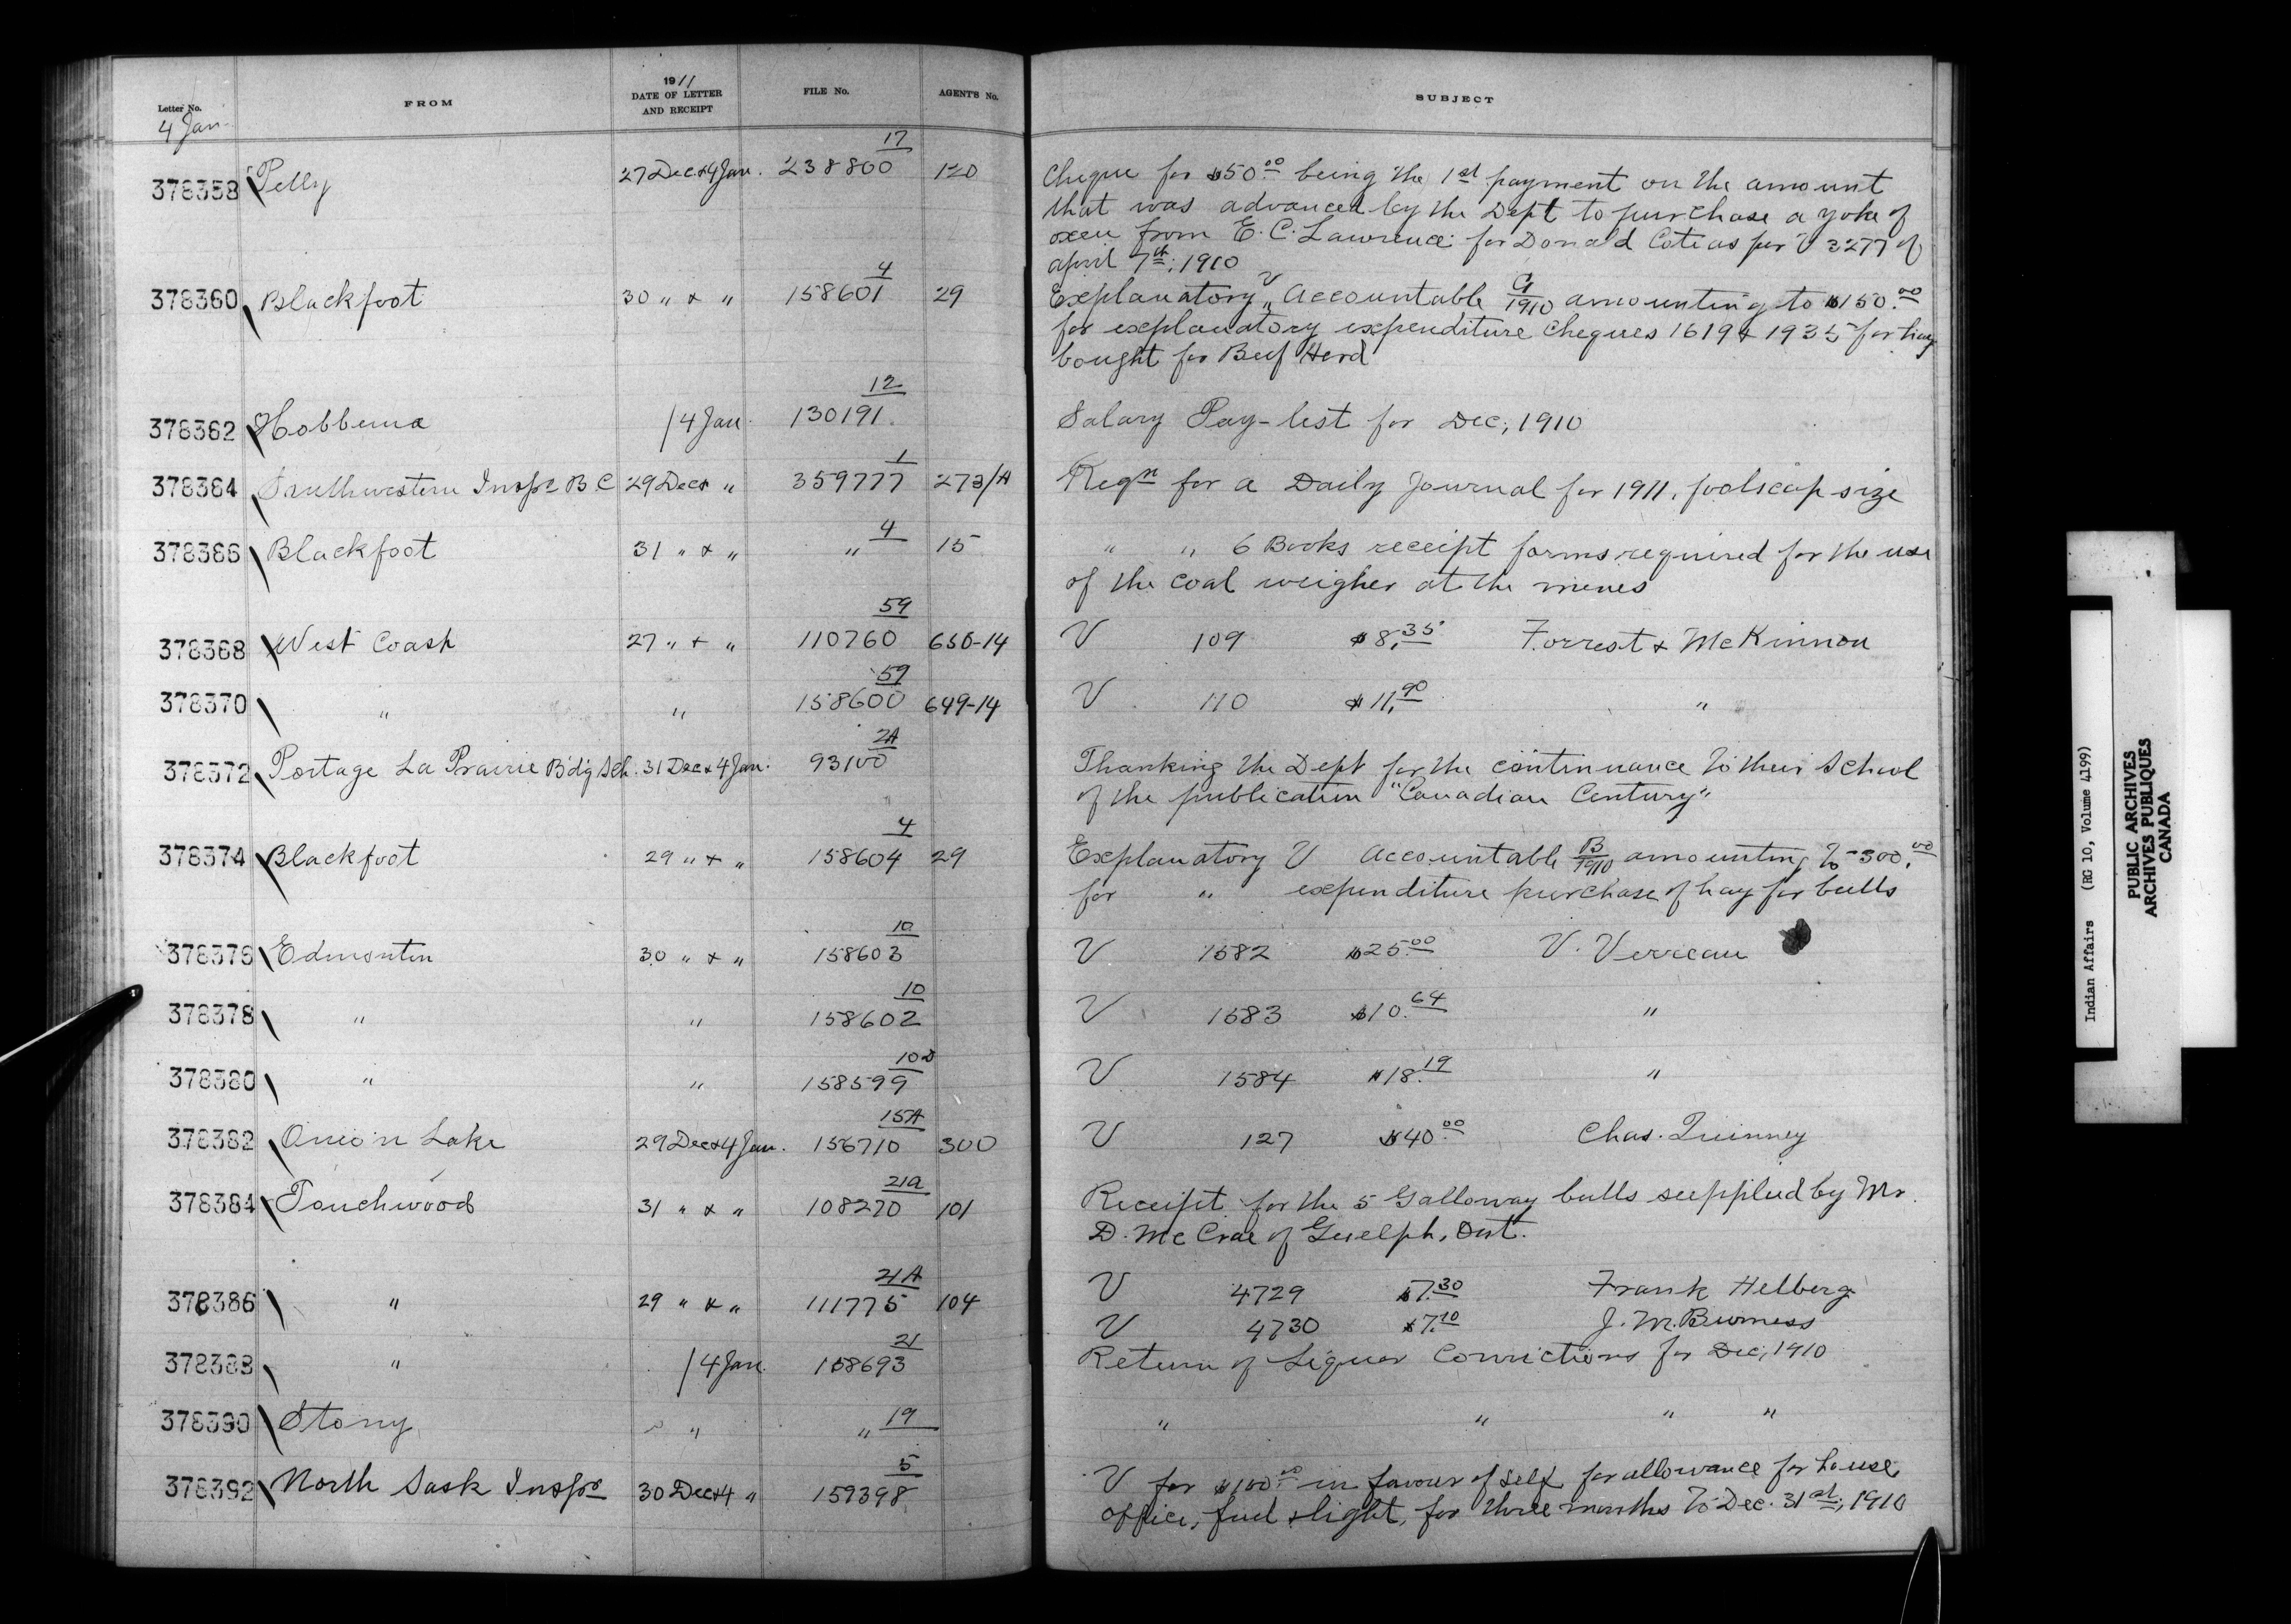 1911
Letter No. FROM DATE OF LETTER AND RECEIPT FILE No. AGENT'S No. SUBJECT
4 Jan
17
378358 Pelly 27 Dec & 4 Jan. 238800 120 Cheque for $50.00 being the 1st payment on the amount
that was advanced by the Dept to purchase a yoke of
oxen from E. C. Lawrence for Donald Cote as per V 3277 of
April 7th, 1910
4
378360 Blackfoot 30 " & " 158601 29 Explanatory V " Accountable G/1910 amounting to $150.00
for explanatory expenditure Cheques 1619 & 1935 for hay
bought for Beef Herd
12
378362 Hobbema / 4 Jan. 130191 Salary Pay-list for Dec, 1910
1
378364 Southwestern Inspr B C 29 Dec & " 359777 273/A Reqn for a Daily Journal for 1911, foolscap size
4
378366 Blackfoot 31 " & " " 15 " " 6 Books receipt forms required for the use
of the coal weigher at the mines
59
378368 West Coast 27 " & " 110760 650-14 V 109 $8.35 Forrest & McKinnon
59
378370 " " 158600 649-14 V 110 $11.90 "
2A
378372 Portage La Prairie Bdg Sch. 31 Dec & 4 Jan. 93100 Thanking the Dept for the continuance to their School
of the publication "Canadian Century"
4
378374 Blackfoot 29 " & " 158604 29 Explanatory V Accountable B/1910 amounting to 300.00
for " expenditure purchase of hay for bulls
10
378376 Edmonton 30 " & " 158603 V 1582 $25.00 V. Verreau
10
378378 " " 158602 V 1583 $10.64 "
10D
378380 " " 158599 V 1584 $18.19 "
15A
378382 Onion Lake 29 Dec & 4 Jan. 156710 300 V 127 $40.00 Chas. Quinney
21a
378384 Touchwood 31 " & " 108270 101 Receipt for the 5 Galloway bulls supplied by Mr.
D. McCrae of Guelph, Ont.
21A
378386 " 29 " & " 111775 104 V 4729 $7.30 Frank Helberg
V 4730 $7.10 J. M. Burness
21
378388 " / 4 Jan. 158693 Return of Liquor Convictions for Dec, 1910
19
378390 Stony " " " " " " "
5
378392 North Sask Inspr 30 Dec & 4 " 159398 V for $100.00 in favour of self for allowance for house,
office, fuel & light, for three months to Dec. 31st, 1910
Indian Affairs (RG 10, Volume 4199)
PUBLIC ARCHIVES
ARCHIVES PUBLIQUES
CANADA